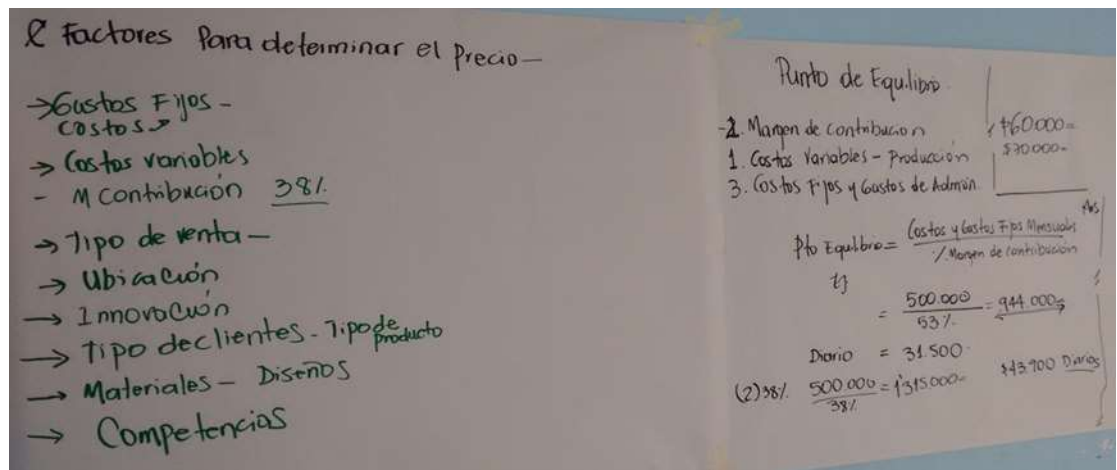 Factores Para determinar el Precio —
→ Gastos Fijos -
Costos
→ Costos variables
- M Contribución 38%
→ Tipo de venta —
→ Ubicación
→ Innovación
→ Tipo de clientes - Tipo de producto
→ Materiales - Diseños
→ Competencias
Punto de Equilibrio
2. Margen de contribucion $60.000=
1. Costos Variables - Producción $30.000=
3. Costos Fijos y Gastos de Admón.
Pto Equilibrio = Costos y Gastos Fijos Mensuales
% Margen de contribución
= 500.000 = 944.000
53%
Diario = 31.500
(2) 38% 500.000 = 1'315.000 $43.900 Diarios
38%